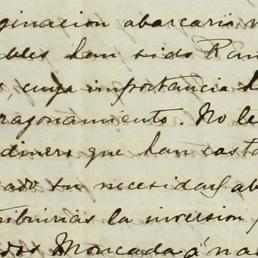 ginacion abarcaria
bles han sido Ran
cuya importancia h
ragonamiento. No le
dinero que han costa
ado su necesidad ab
tribuirias la inversion
dos Moncada á na